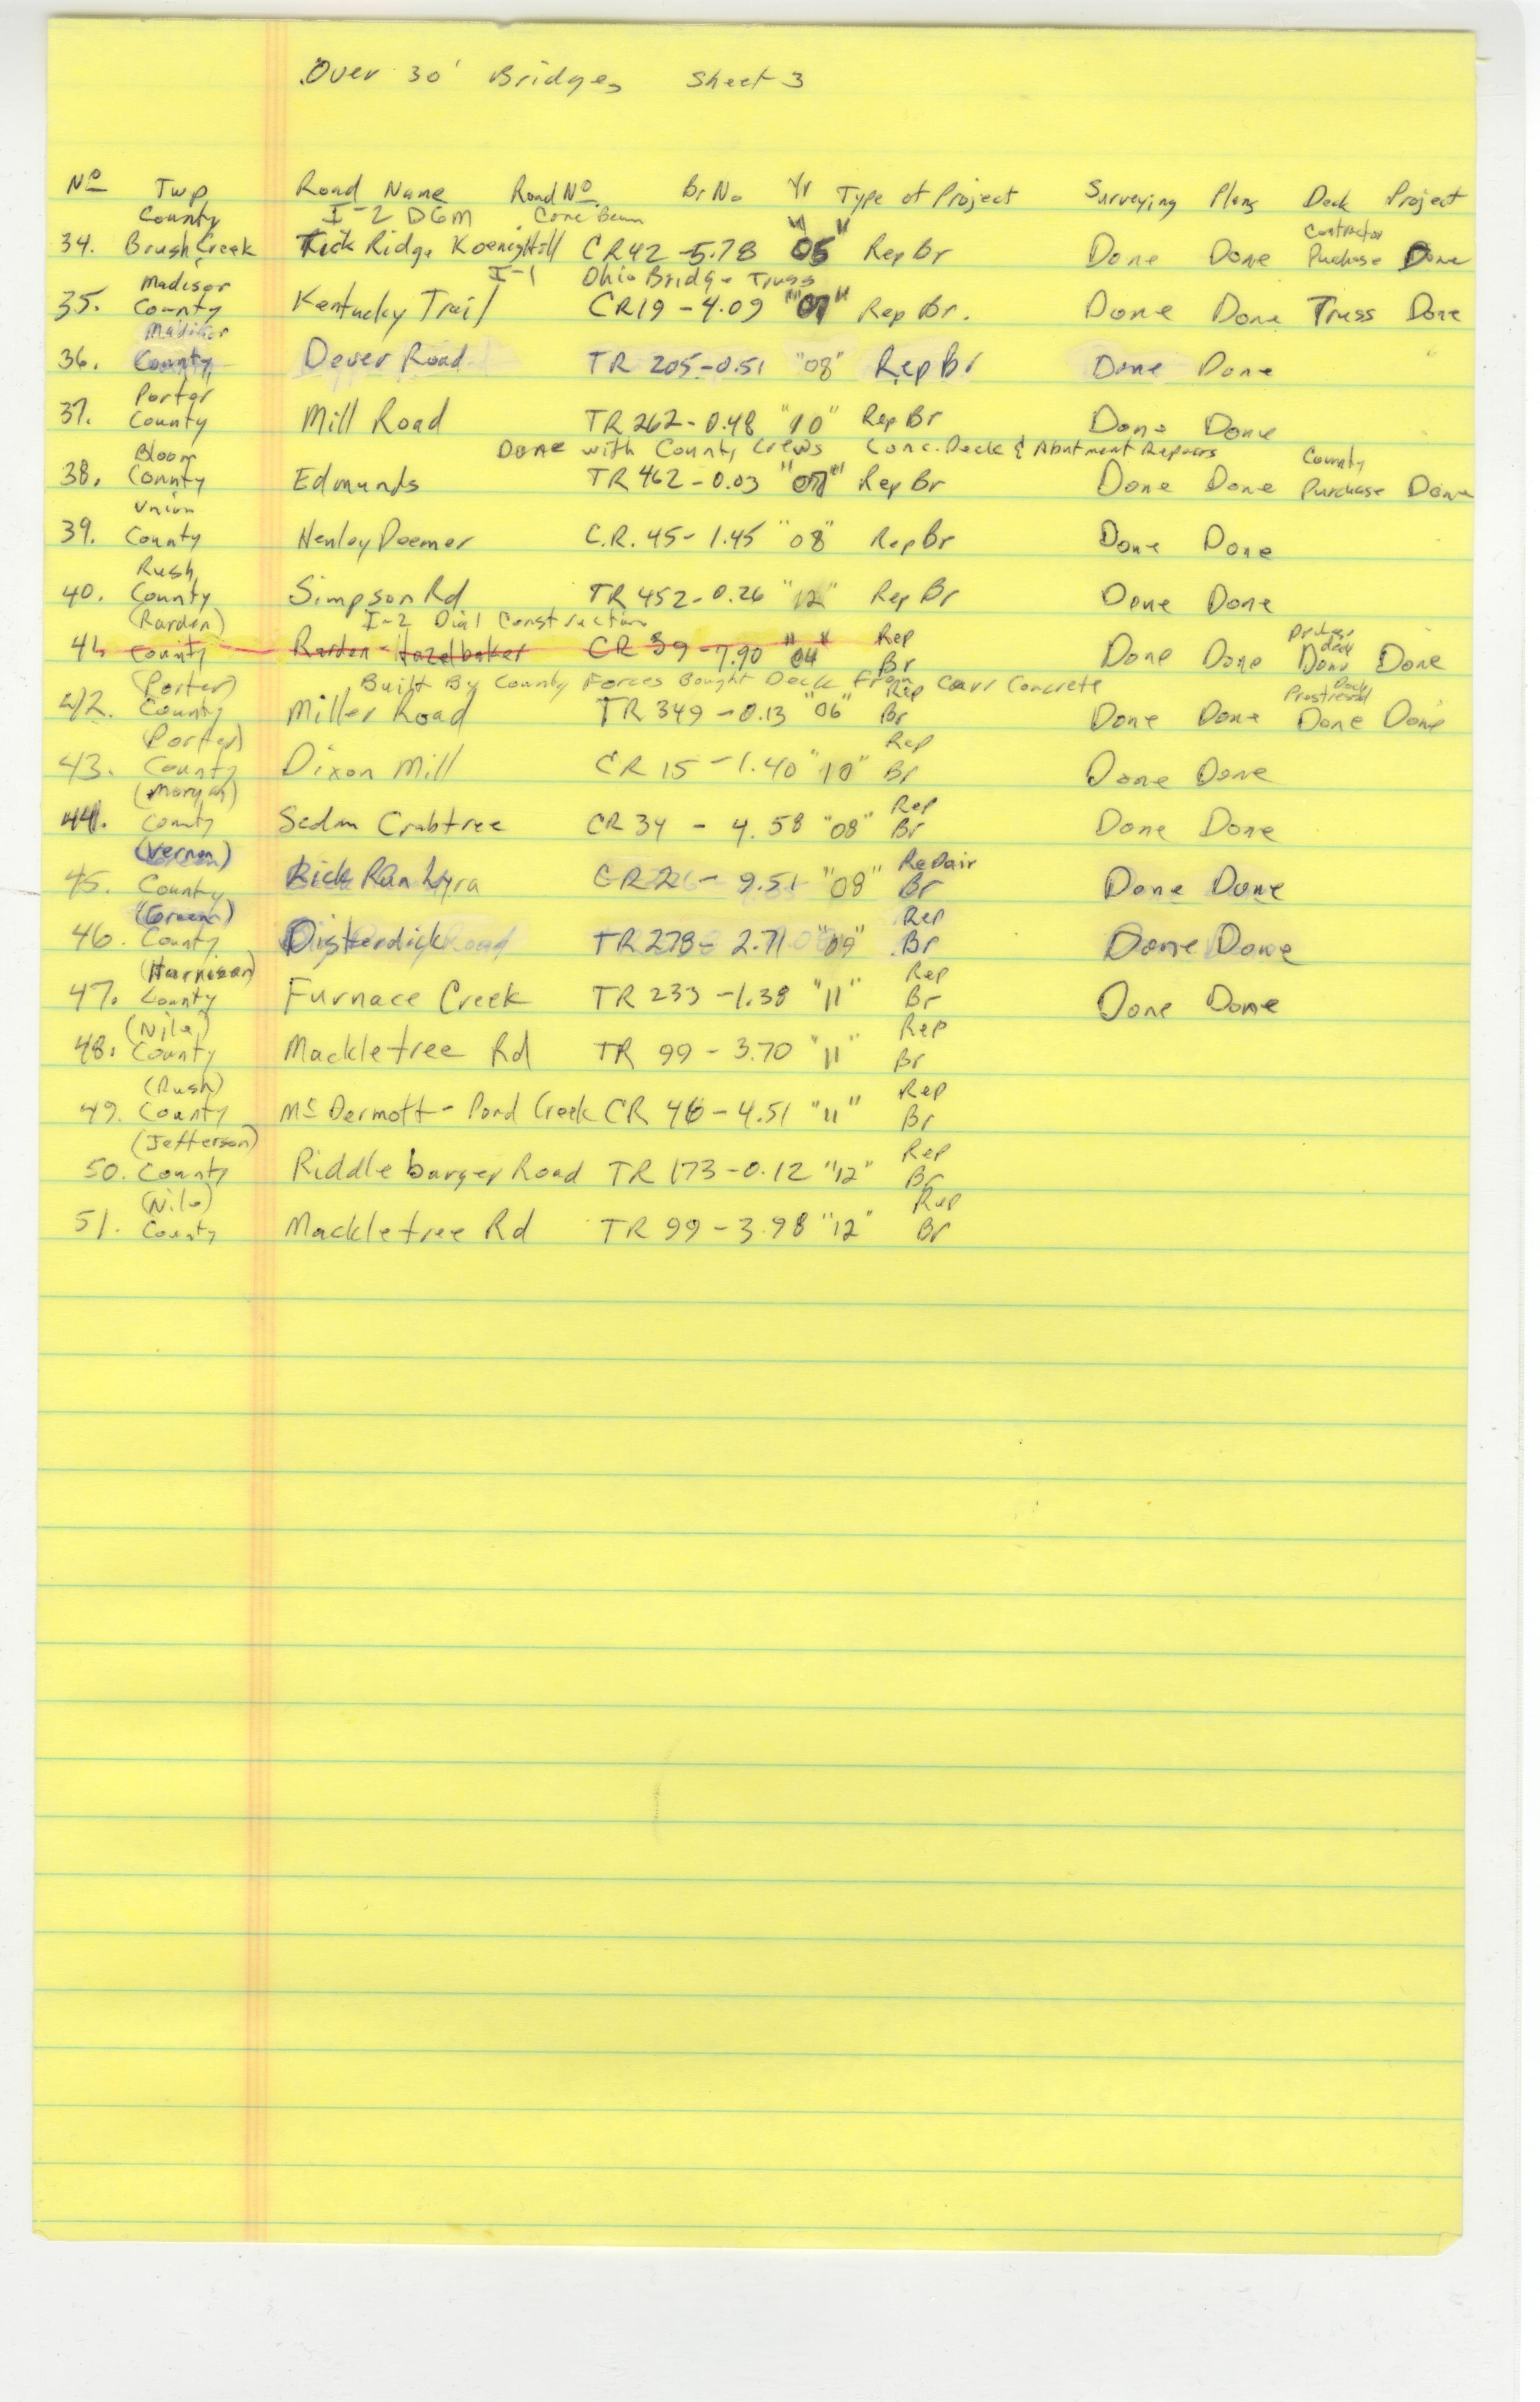 Over 30' Bridges Sheet 3
No Twp Road Name Road No. Br No. Yr Type of Project Surveying Plans Deck Project
County I-2 DGM Conc Beam Contractor
34. Brush Creek Rick Ridge Koenig Hill CR42 - 5.78 "05" Rep Br Done Done Purchase Done
Madison I-1 Ohio Bridge Truss
35. County Kentucky Trail CR19 - 4.09 "07" Rep Br. Done Done Truss Done
Madison
36. County Dever Road TR 205 - 0.51 "08" Rep Br Done Done
Porter
37. County Mill Road TR 262 - 0.48 "10" Rep Br Done Done
Bloom Done with County Crews Conc. Deck & Abutment Repairs County
38. County Edmunds TR 462 - 0.03 "07" Rep Br Done Done Purchase Done
Union
39. County Henley Deemer C.R. 45 - 1.45 "08" Rep Br Done Done
Rush
40. County Simpson Rd TR 452 - 0.26 "12" Rep Br Done Done
(Rarden) I-2 Dial Construction Rep deck
41. County Rarden - Hazelbaker CR 39 - 7.90 "04" Br Done Done Done Done
(Porter) Built By County Forces Bought Deck From Carr Concrete Rep Prestressed Deck
42. County Miller Road TR 349 - 0.13 "06" Br Done Done Done Done
(Porter) Rep
43. County Dixon Mill CR 15 - 1.40 "10" Br Done Done
(Morgan) Rep
44. County Sedan Crabtree CR 34 - 4.58 "08" Br Done Done
(Vernon) Repair
45. County Lick Run Lyra CR 26 - 9.51 "08" Br Done Done
(Green) Rep
46. County Disterdick Road TR 278 - 2.71 "09" Br Done Done
(Harrison) Rep
47. County Furnace Creek TR 233 - 1.38 "11" Br Done Done
(Nile) Rep
48. County Mackletree Rd TR 99 - 3.70 "11" Br
(Rush) Rep
49. County McDermott - Pond Creek CR 46 - 4.51 "11" Br
(Jefferson) Rep
50. County Riddlebarger Road TR 173 - 0.12 "12" Br
(Nile) Rep
51. County Mackletree Rd TR 99 - 3.98 "12" Br